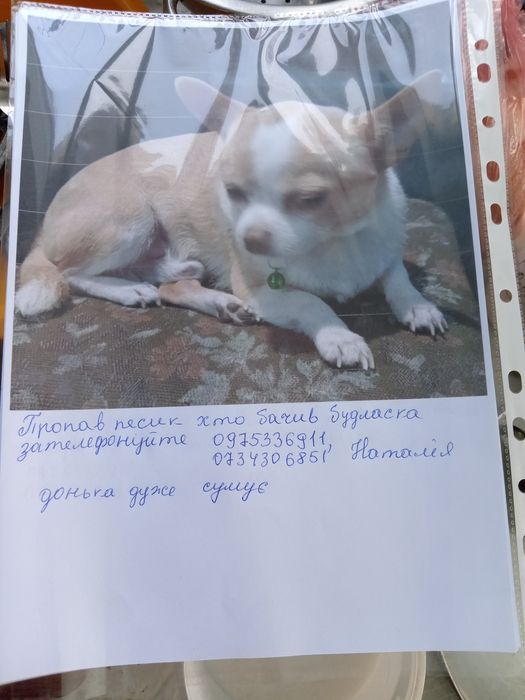 Пропав песик хто бачив будласка
зателефонуйте 0975336911,
0734306851 Наталія
донька дуже сумує